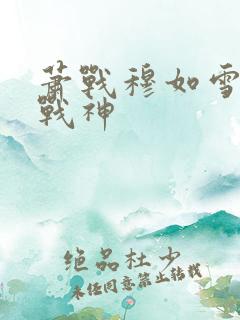 萧戰穆如雪
戰神
绝品杜少
未经同意禁止转载